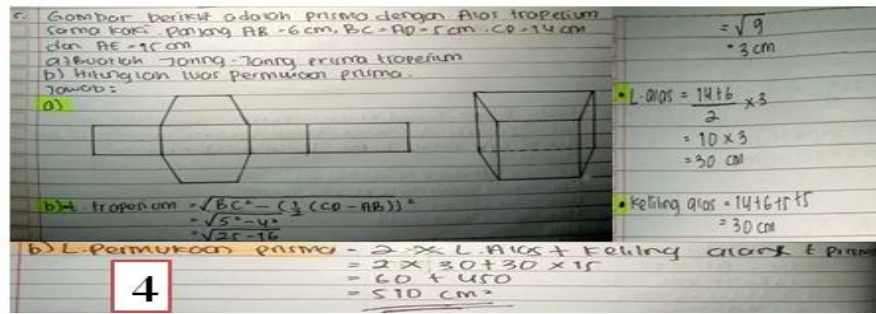 5. Gambar berikut adalah prisma dengan Alas trapesium
sama kaki. Panjang AB = 6 cm, BC = AD = 5 cm . CD = 14 cm
dan AE = 15 cm
a) Buatlah Jaring-Jaring prisma trapesium
b) Hitunglah luas permukaan prisma.
Jawab :
a)
b) t. trapesium = √BC² - (½ (CD - AB))²
= √5² - 4²
= √25 - 16
= √9
= 3 cm
• L. alas = 14+6/2 × 3
= 10 × 3
= 30 cm
• Keliling alas = 14+6+5+5
= 30 cm
b) L. Permukaan prisma = 2 × L. Alas + Keliling alas × t prisma
= 2 × 30 + 30 × 15
= 60 + 450
= 510 cm²
4